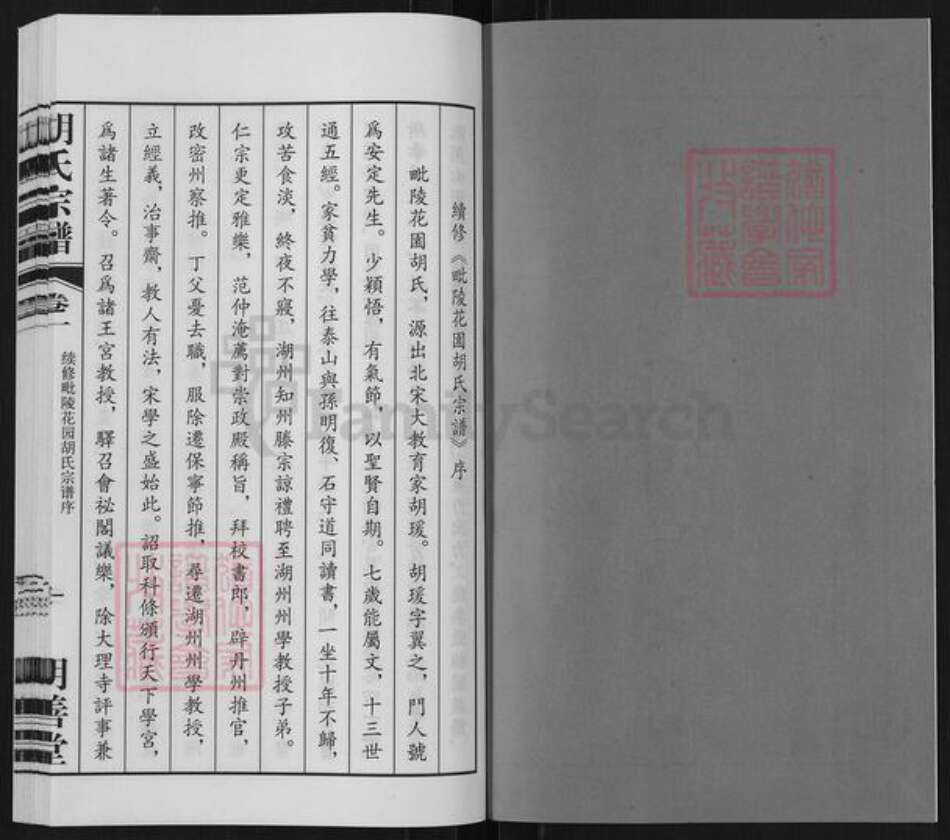 續修《毗陵花園胡氏宗譜》序
毗陵花園胡氏，源出北宋大教育家胡瑗。胡瑗字翼之，門人號
爲安定先生。少穎悟，有氣節，以聖賢自期。七歲能屬文，十三世
通五經。家貧力學，往泰山與孫明復、石守道同讀書，一坐十年不歸，
攻苦食淡，終夜不寢，湖州知州滕宗諒禮聘至湖州州學教授子弟。
仁宗更定雅樂，范仲淹薦對崇政殿稱旨，拜校書郎，辟丹州推官，
改密州察推。丁父憂去職，服除遷保寧節推，尋遷湖州州學教授，
立經義，治事齋，教人有法，宋學之盛始此。詔取科條頒行天下學宮，
爲諸生著令。召爲諸王宮教授，驛召會祕閣議樂，除大理寺評事兼
胡氏宗譜
卷一
续修毗陵花园胡氏宗谱序
一
明善堂
FamilySearch